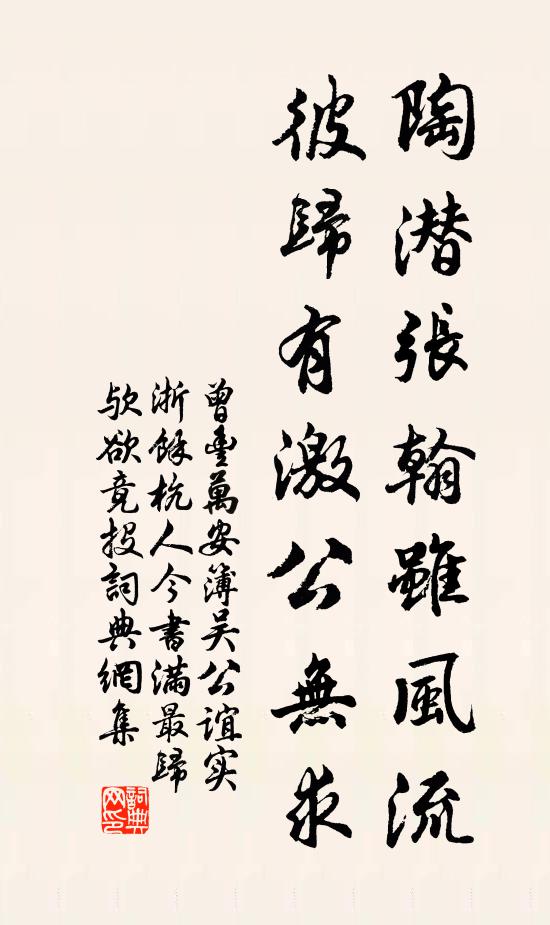 陶潛張翰雖風流
彼歸有激公無求
曾豊萬安簿吴公誼实
浙餘杭人今書滿最歸
欤欲竟投詞典網集
詞典网印